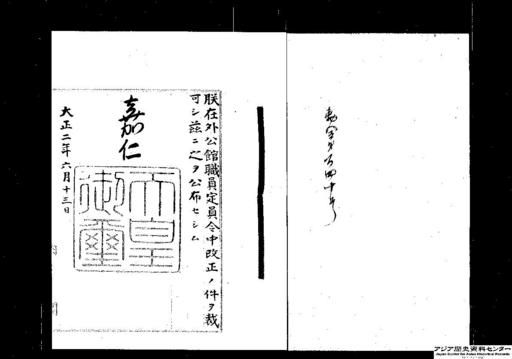 勅令第百四十号
朕在外公館職員定員令中改正ノ件ヲ裁
可シ茲ニ之ヲ公布セシム
嘉仁
天皇
御璽
大正二年六月十三日
アジア歴史資料センター
Japan Center for Asian Historical Records